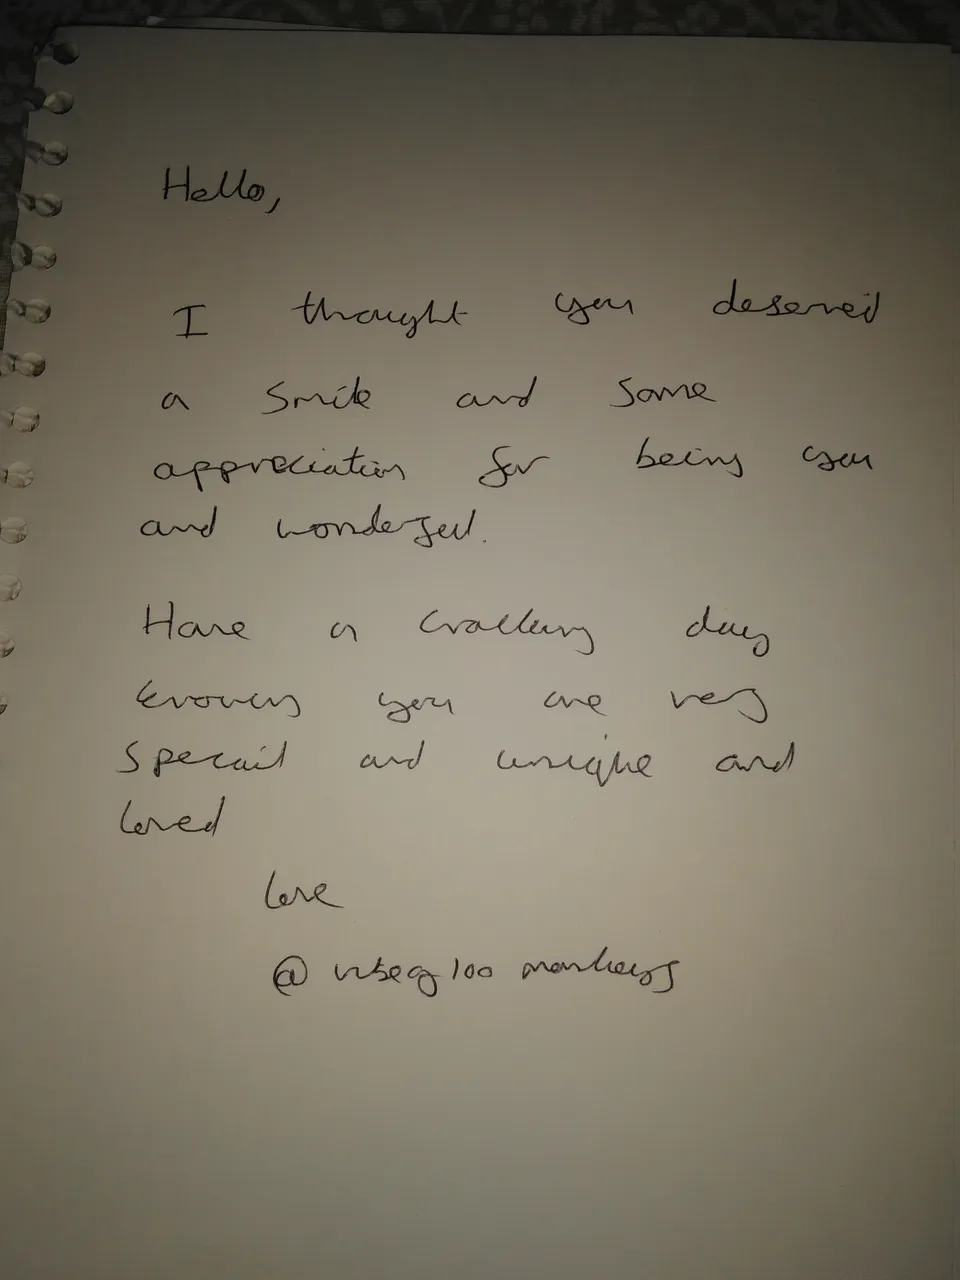 Hello,
I thought you deserved
a smile and some
appreciation for being you
and wonderful.
Have a cracking day
knowing you are very
specail and unique and
loved
love
@ 100 monkeys